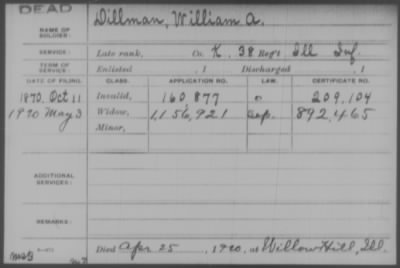 DEAD
NAME OF SOLDIER: Dillman, William A.
SERVICE: Late rank, Co. K, 38 Reg't Ill Inf.
TERM OF SERVICE: Enlisted , 1 Discharged , 1
DATE OF FILING. CLASS. APPLICATION NO. LAW. CERTIFICATE NO.
1870, Oct 11 Invalid, 160,877 209,104
1920 May 3 Widow, 1,156,921 892,465
Minor,
ADDITIONAL SERVICES:
REMARKS:
Died Apr 25, 1920, at Willow Hill, Ill.